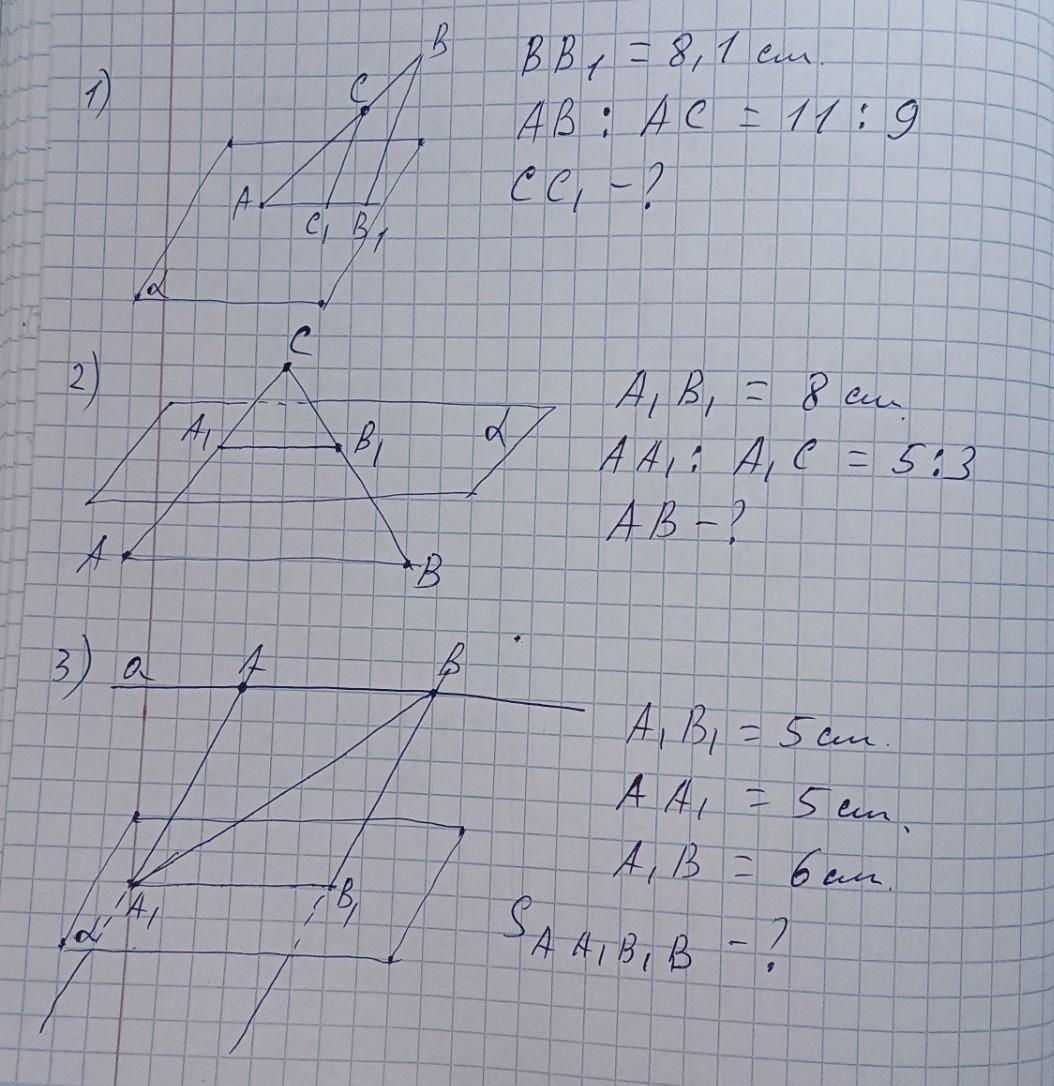 1)
B
C
A
C₁ B₁
α
BB₁ = 8,1 см.
AB : AC = 11 : 9
CC₁ - ?
2)
C
A₁
B₁
α
A
B
A₁B₁ = 8 см.
AA₁ : A₁C = 5:3
AB - ?
3) a
A
B
A₁
B₁
α
A₁B₁ = 5 см.
AA₁ = 5 см.
A₁B = 6 см.
S AA₁B₁B - ?